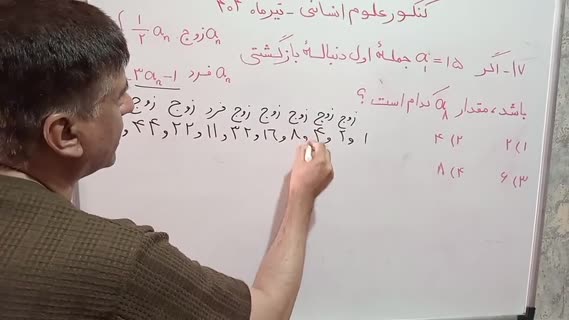 کنکور علوم انسانی - تیرماه ۴۰۴
۱۷- اگر a₁ = ۱۵ جملهٔ اول دنبالهٔ بازگشتی { 1/2 aₙ زوج aₙ
3aₙ-1 فرد aₙ
باشد، مقدار a₈ کدام است؟
زوج زوج زوج زوج زوج فرد زوج زوج
۱ و ۲ و ۴ و ۸ و ۱۶ و ۳۲ و ۱۱ و ۲۲ و ۴۴ و
۱) ۲ ۲) ۴
۳) ۶ ۴) ۸